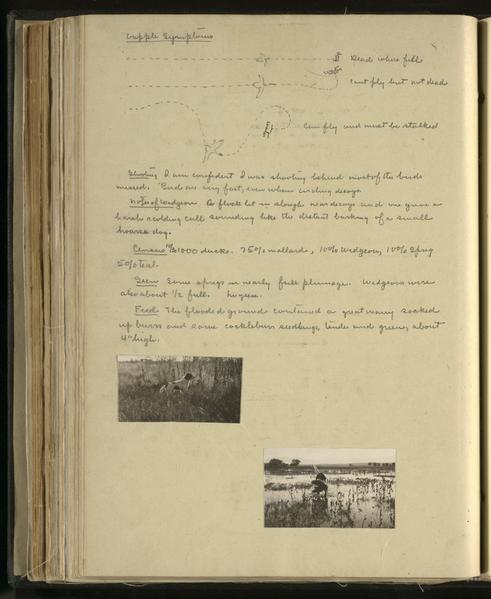 Cripple Symptoms
Dead when fell
Cant fly but not dead
Can fly and must be stalked
Shooting I am confident I was shooting behind most of the birds
missed. Birds are very fast, even when circling decoys.
Notes of Widgeon. A flock lit in slough near decoys and one gave a
harsh scolding call sounding like the distant barking of a small
hoarse dog.
Census 1000 ducks. 75% mallard, 10% Widgeon, 10% Sprig
5% teal.
Some sprigs in nearly full plumage. Widgeons were
also about 1/2 full.
Feed. The flooded ground contained a great many soaked
up burrs and some cocklebur seedlings, tender and green, about
4" high.